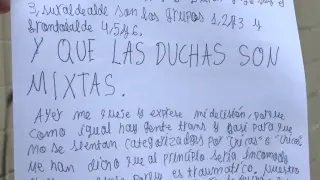 3, suraldealde son los grupos 1,2 y 3 y
frontobal de 4,5 y 6.
Y QUE LAS DUCHAS SON
MIXTAS.
Ayer me queje y exprese mi decisión, porque
como igual hay gente trans y gasi para que
no se sientan categorizados por "chicas" o "chicos"
me han dicho que al principio sería incomodo
porque es traumático, nuestro